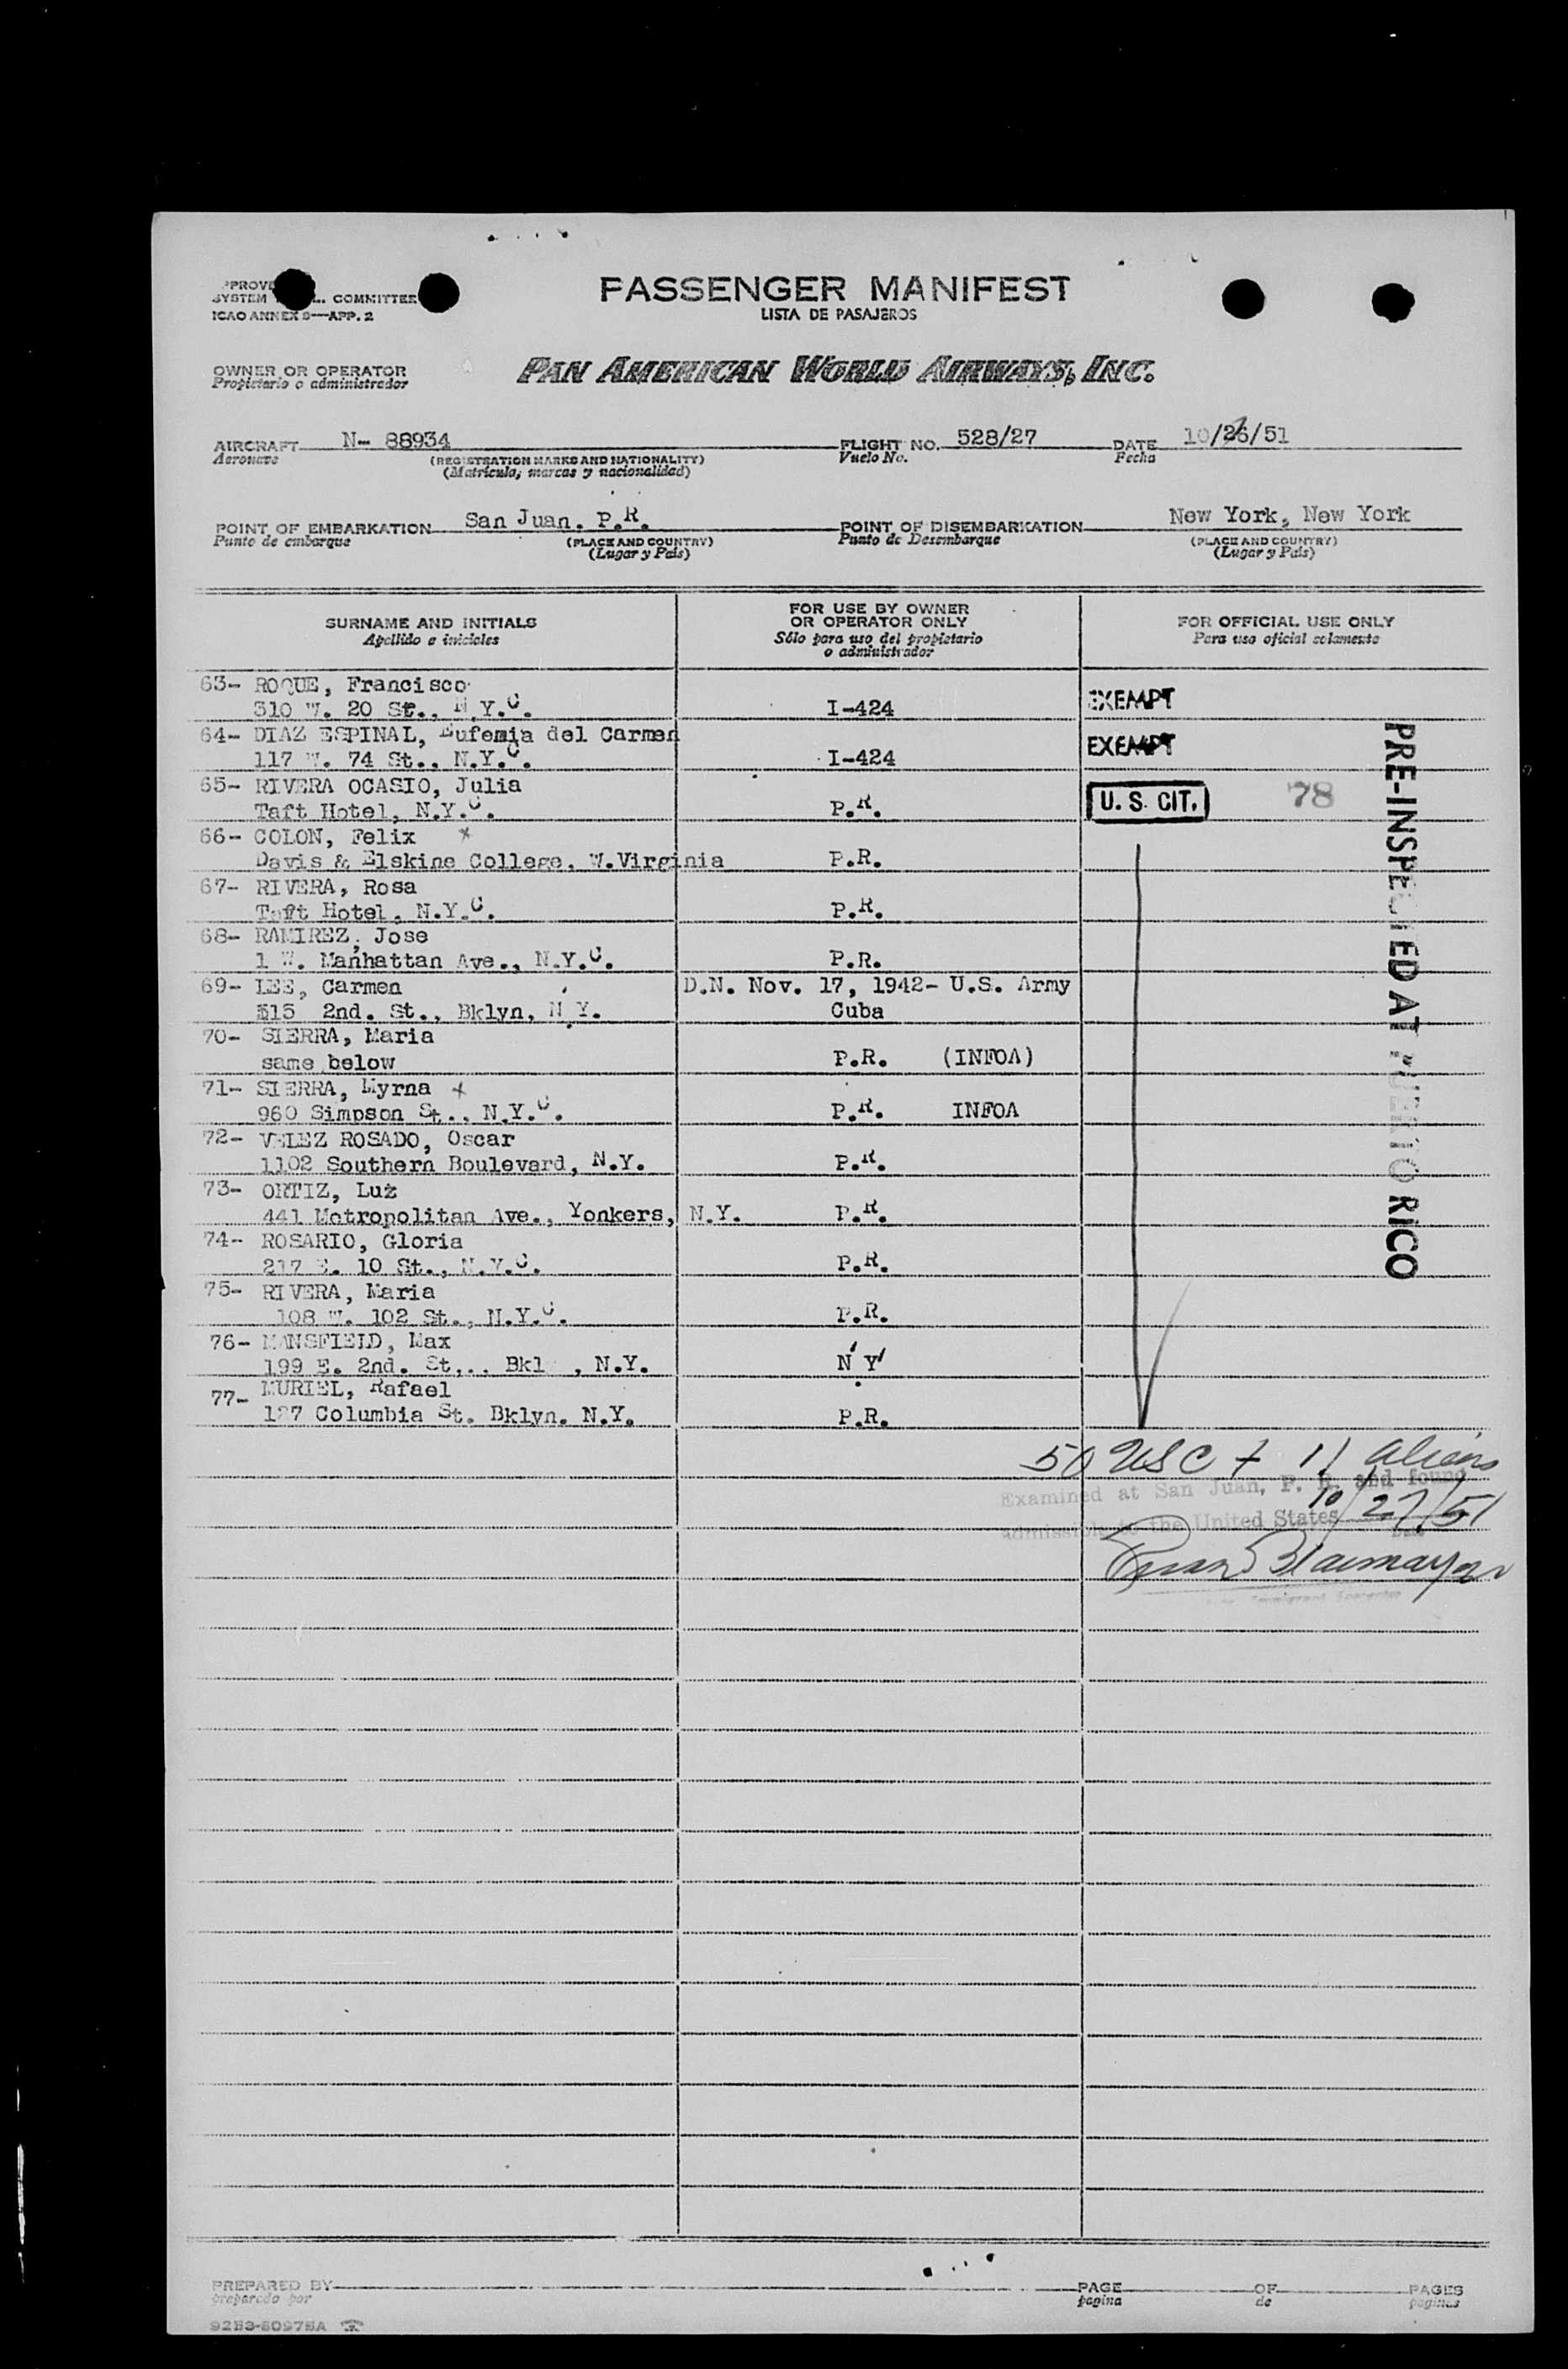 PASSENGER MANIFEST
LISTA DE PASAJEROS
SYSTEM COMMITTEE
ICAO ANNEX 9—APP. 2
OWNER OR OPERATOR
Propietario o administrador
PAN AMERICAN WORLD AIRWAYS, INC.
AIRCRAFT N- 88934 FLIGHT NO. 528/27 DATE 10/26/51
Aeronave (REGISTRATION MARKS AND NATIONALITY) Vuelo No. Fecha
(Matricula, marcas y nacionalidad)
POINT OF EMBARKATION San Juan. P.R. POINT OF DISEMBARKATION New York, New York
Punto de embarque (PLACE AND COUNTRY) Punto de Desembarque (PLACE AND COUNTRY)
(Lugar y País) (Lugar y País)
SURNAME AND INITIALS FOR USE BY OWNER OR OPERATOR ONLY FOR OFFICIAL USE ONLY
Apellido e iniciales Sólo para uso del propietario o administrador Para uso oficial solamente
63- ROQUE, Francisco
310 W. 20 St., N.Y.C. I-424 EXEMPT
64- DIAZ ESPINAL, Eufemia del Carmen
117 W. 74 St., N.Y.C. I-424 EXEMPT
65- RIVERA OCASIO, Julia
Taft Hotel, N.Y.C. P.R. U. S. CIT. 78
66- COLON, Felix x
Davis & Elskine College, W.Virginia P.R.
67- RIVERA, Rosa
Taft Hotel, N.Y.C. P.R.
68- RAMIREZ, Jose
1 W. Manhattan Ave., N.Y.C. P.R.
69- LEE, Carmen D.N. Nov. 17, 1942- U.S. Army
515 2nd. St., Bklyn, N.Y. Cuba
70- SIERRA, Maria
same below P.R. (INFOA)
71- SIERRA, Myrna x
960 Simpson St., N.Y.C. P.R. INFOA
72- VELEZ ROSADO, Oscar
1102 Southern Boulevard, N.Y. P.R.
73- ORTIZ, Luz
441 Metropolitan Ave., Yonkers, N.Y. P.R.
74- ROSARIO, Gloria
217 E. 10 St., N.Y.C. P.R.
75- RIVERA, Maria
108 W. 102 St., N.Y.C. P.R.
76- MANSFIELD, Max
199 E. 2nd. St., Bkl , N.Y. N Y
77- MURIEL, Rafael
Columbia St. Bklyn. N.Y. P.R.
PRE-INSPECTED AT PUERTO RICO
50 USC + 11 aliens
Examined at San Juan, P. R. and found
admissible to the United States 10/27/51
PREPARED BY PAGE OF PAGES
preparado por pagina de paginas